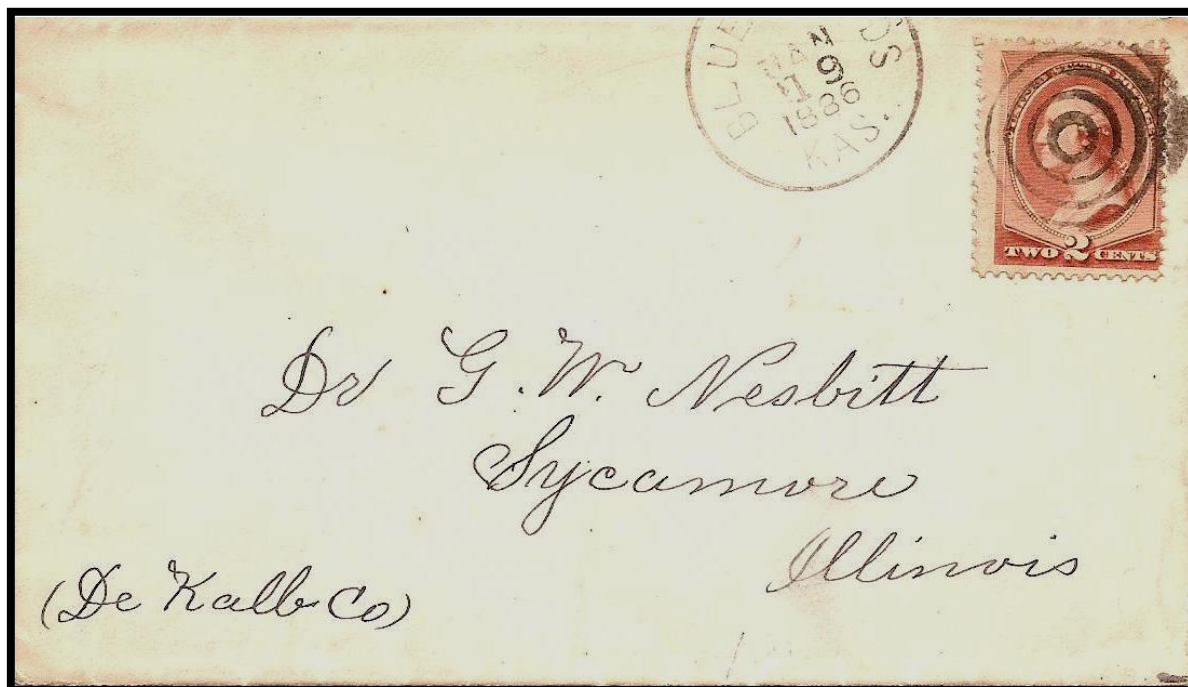 BLUE DS
JAN
19
1886
KAS.
TWO 2 CENTS
Dr G. W. Nesbitt
Sycamore
Illinois
(De Kalb Co)